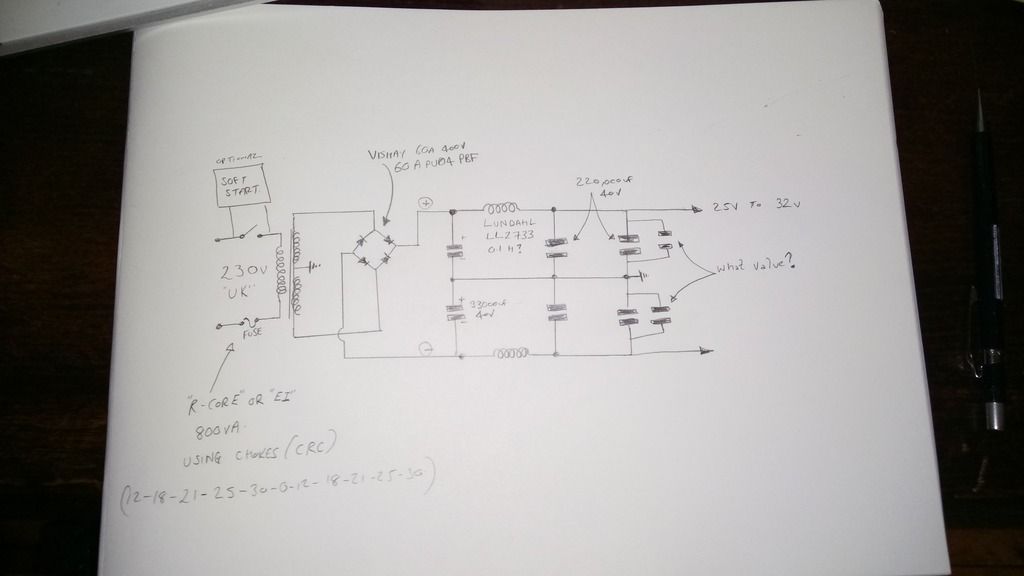 OPTIONAL
SOFT
START
VISHAY 60A 400V
60 A PU04 PBF
+
220,000uf
40V
25V TO 32V
LUNDAHL
LL2733
0.1 H?
+
-
230V
"UK"
What Value?
+
33000uf
40V
-
FUSE
-
"R-CORE" OR "EI"
800VA.
USING CHOKES (CRC)
(12-18-21-25-30-0-12-18-21-25-30)